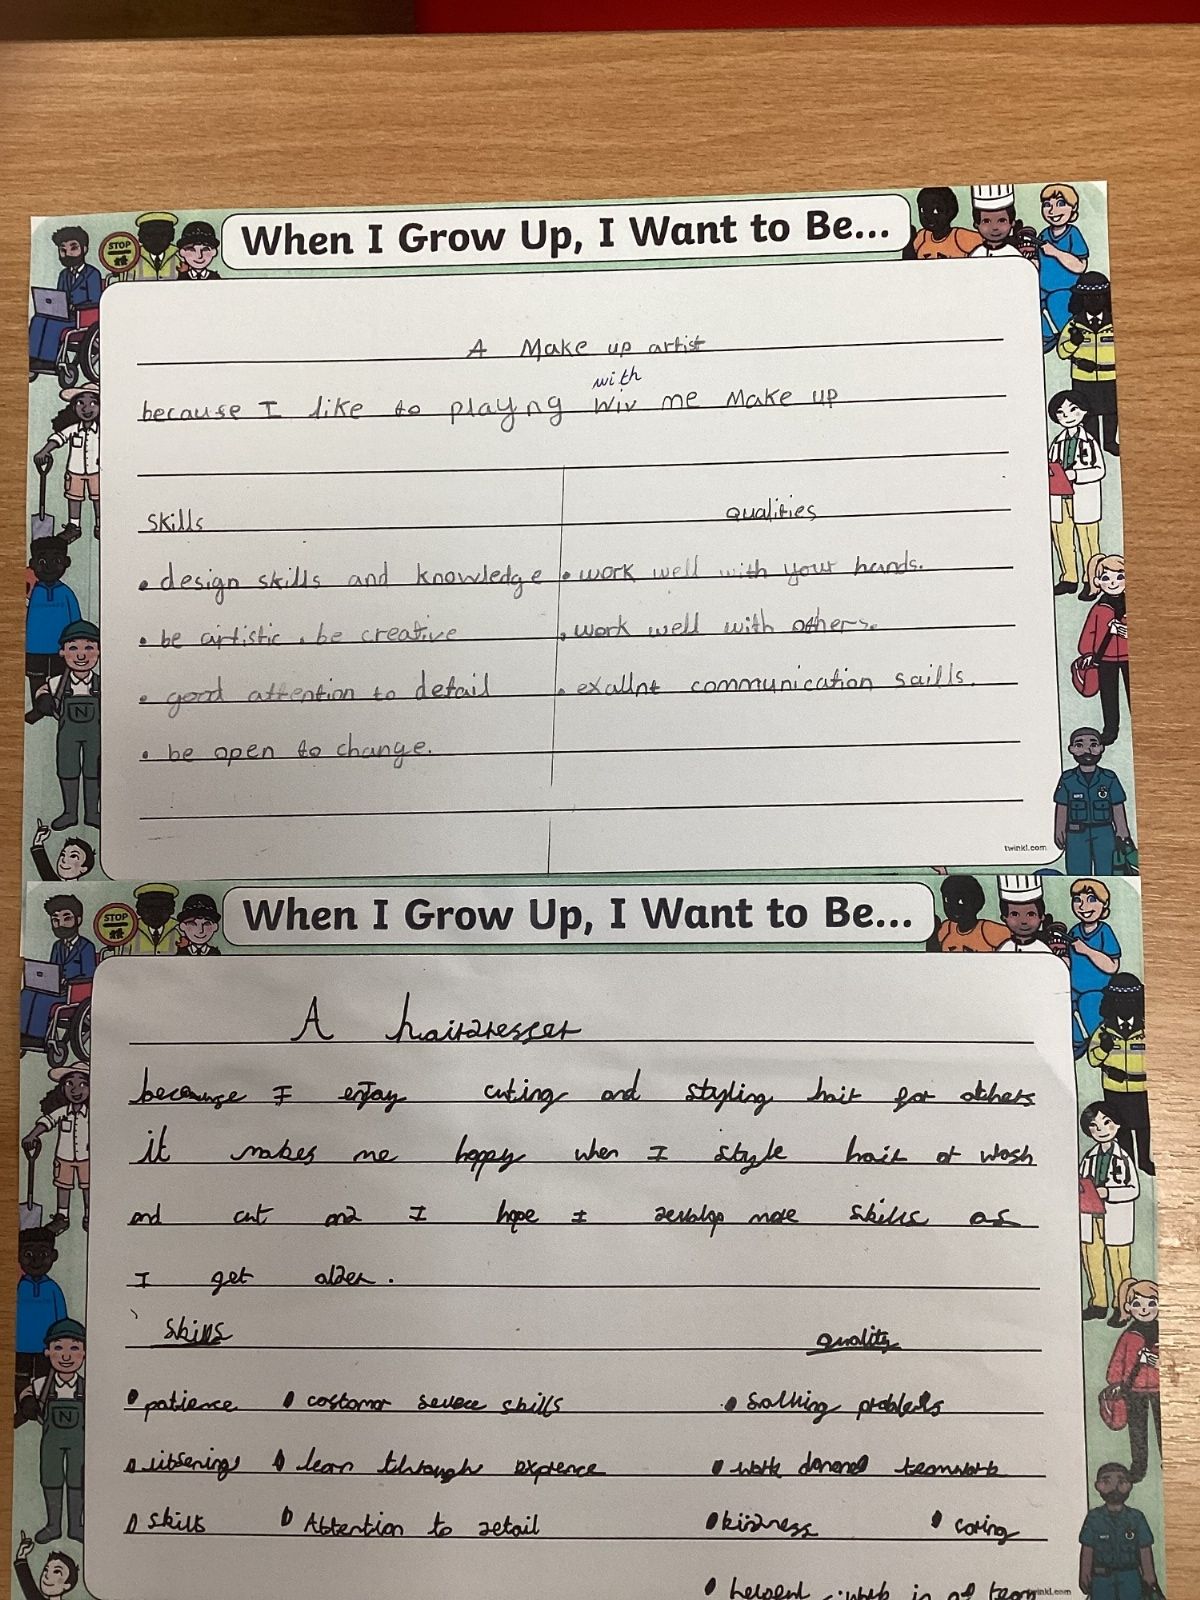 When I Grow Up, I Want to Be...
STOP
A Make up artist
with
because I like to playng wiv me Make up
skills qualities
• design skills and knowledge • work well with your hands.
• be artistic . be creative • work well with others.
• good attention to detail • exallnt communication saills.
• be open to change.
N
twinkl.com
When I Grow Up, I Want to Be...
STOP
A hairdresser
because I enjoy cuting and styling hair for others
it makes me happy when I style hair or wash
and cut and I hope I more skills as
I get older.
skills quality
• patience • costomor skills • problems
• • learn through exprence • work teamwork
• skills • Attention to detail • kindness • caring
• in team
N
twinkl.com